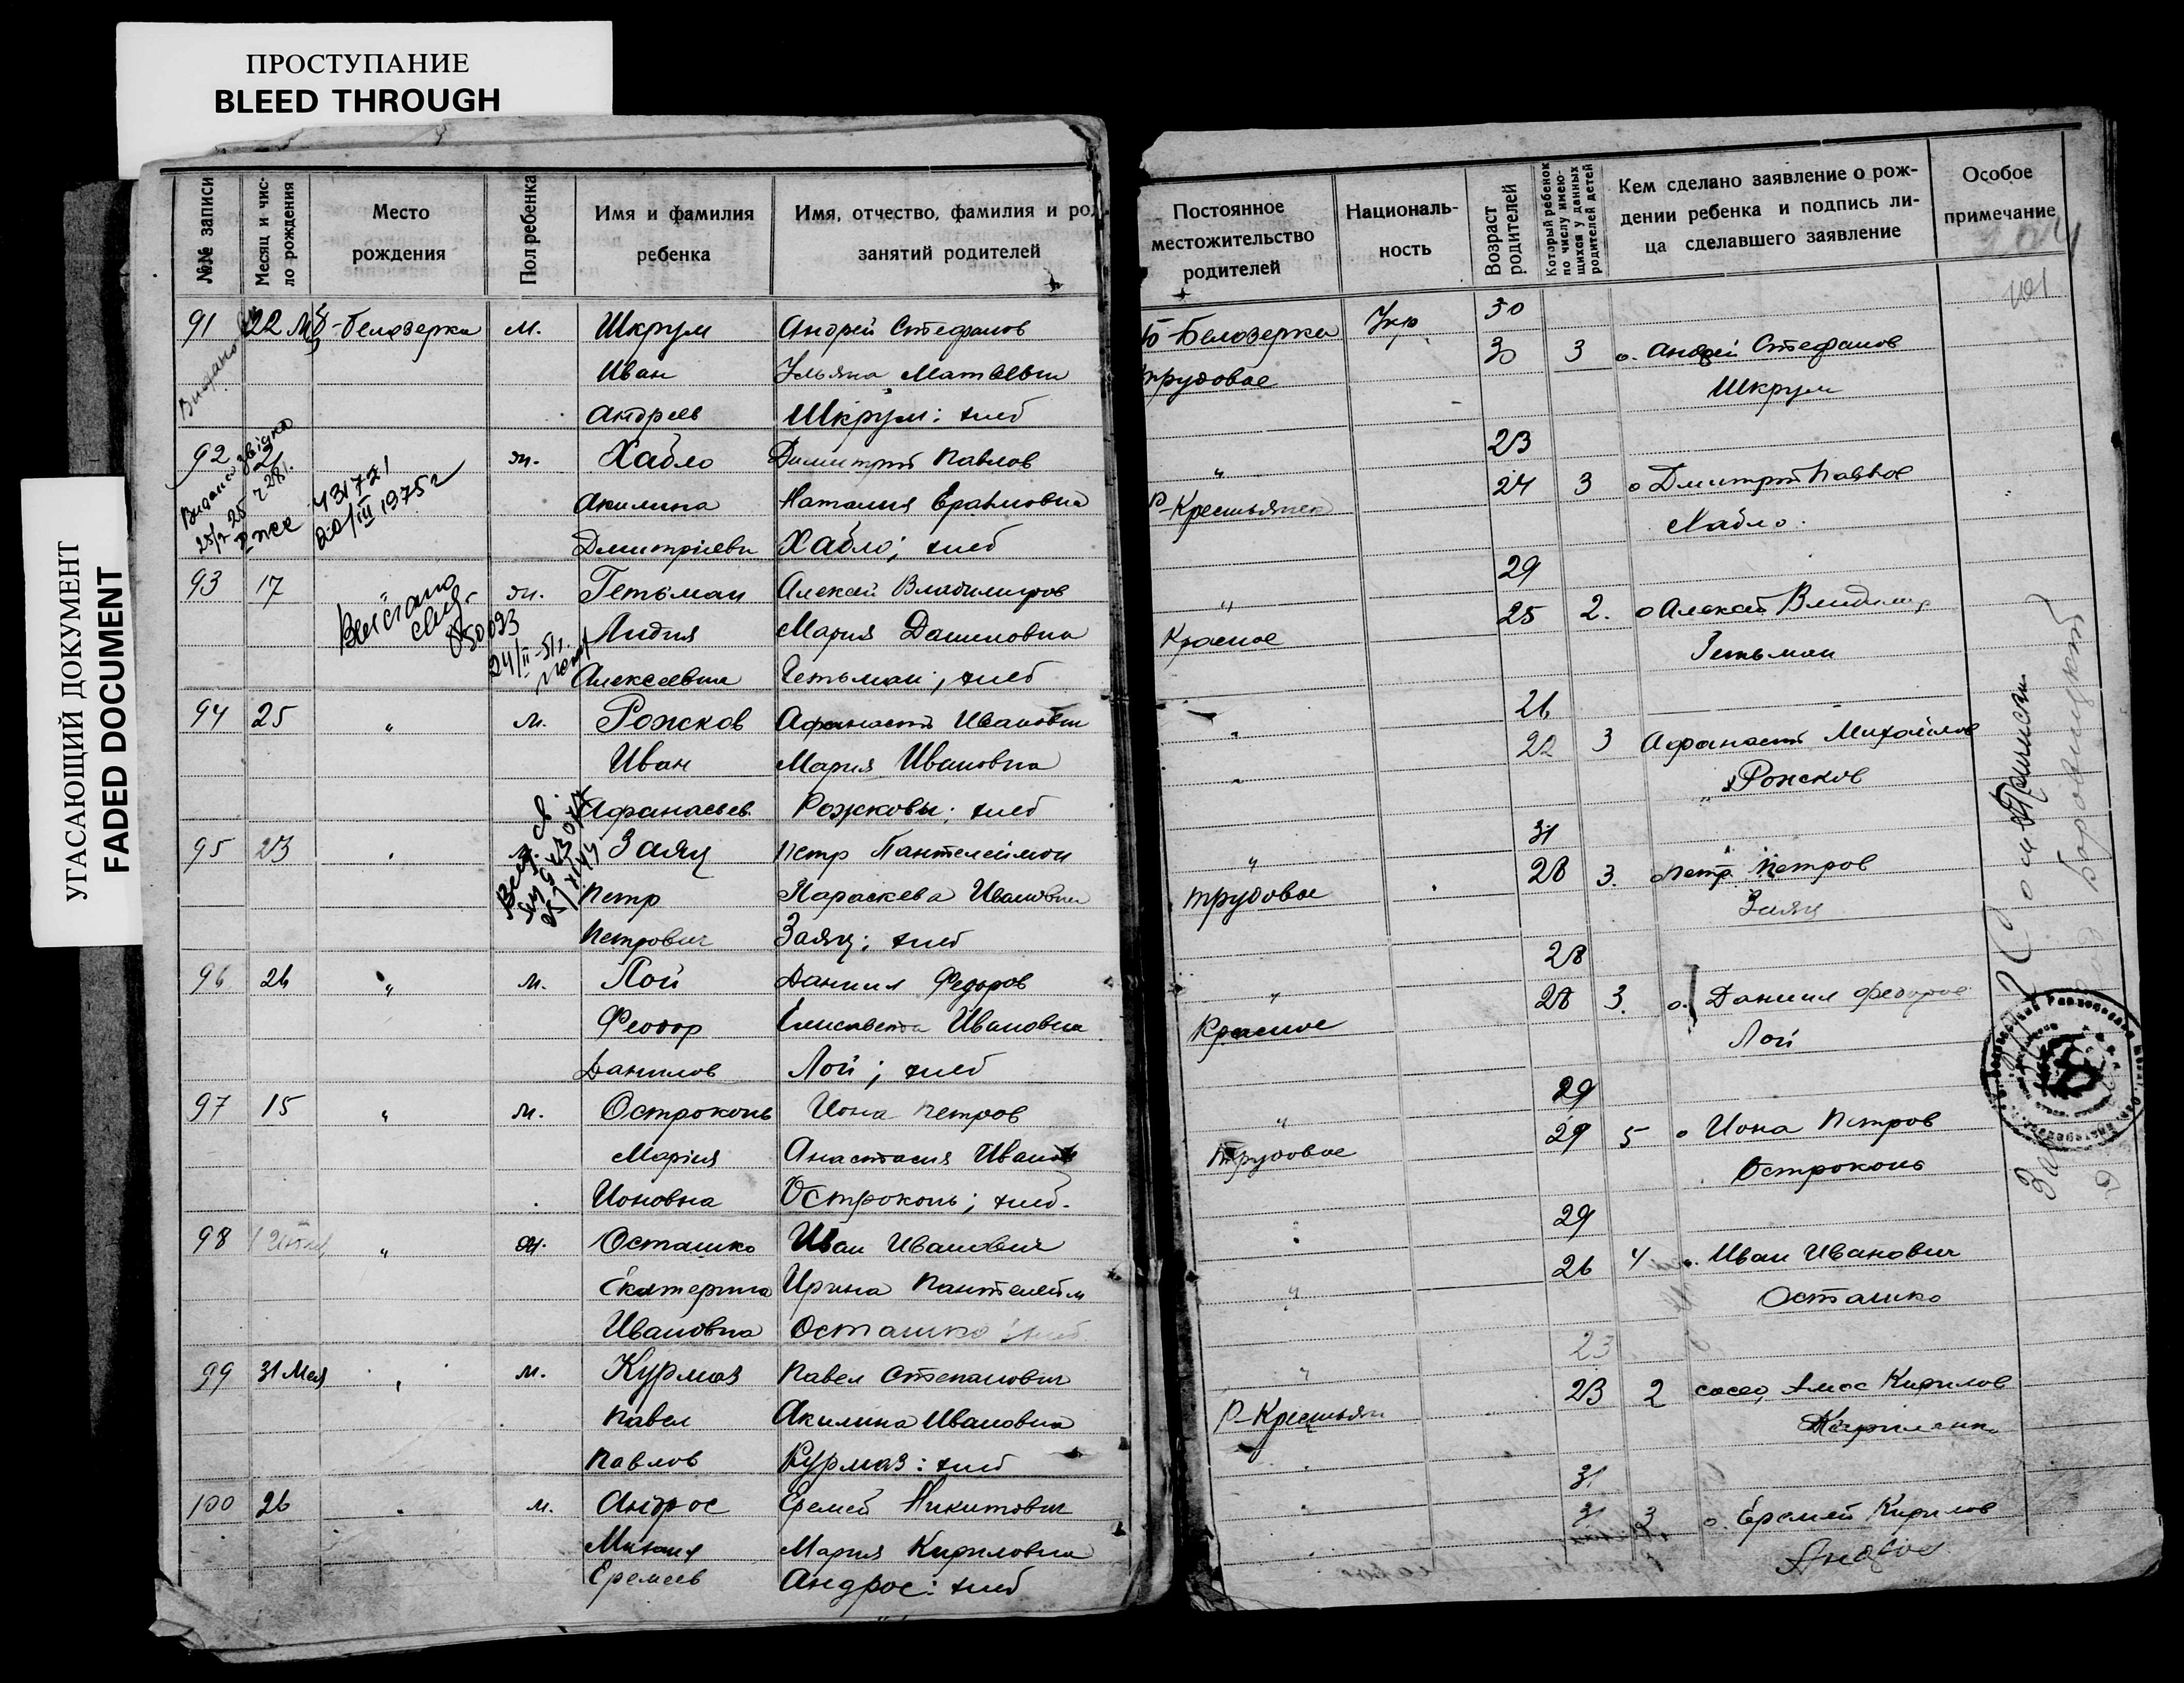 ПРОСТУПАНИЕ
BLEED THROUGH
УГАСАЮЩИЙ ДОКУМЕНТ
FADED DOCUMENT
№№ записи
Месяц и чис-
ло рождения
Место
рождения
Пол ребенка
Имя и фамилия
ребенка
Имя, отчество, фамилия и ро
занятий родителей
91 22 Б-Белозерка м. Шкрум Андрей Стефанов
Иван Ульяна Матвевна
Андреев Шкрум: хлеб
92 ж. Хабло Димитрий Павлов
Акилина Наталия
Дмитріевн Хабло; хлеб
431721
20/III 1975г
93 17 ж. Гетьман Алексей Владимиров
Лидия Мария Даниловна
Алексеевна Гетьман; хлеб
050093
94 25 " м. Рожков Афанасий Иванович
Иван Мария Ивановна
Афанасьев Рожковы; хлеб
95 23 Заяц Петр Пантелеймон
Петр Параскева Ивановна
Петрович Заяц; хлеб
96 26 " м. Лой Даниил Федоров
Феодор Елисавета Ивановна
Данилов Лой; хлеб
97 15 " м. Остроконь Иона Петров
Марія Анастасия Иванов
Ионовна Остроконь; хлеб.
98 " ж. Осташко Иван Иванович
Екатерина Ирина Пантелейм
Ивановна Осташко хлеб
99 31 Мая " м. Курмаз Павел Степанович
Павел Акилина Ивановна
Павлов Курмаз: хлеб
100 26 " м. Андрос Еремей Никитович
Михаил Мария Кириловна
Еремеев Андрос: хлеб
Постоянное
местожительство
родителей
Националь-
ность
Возраст
родителей
Который ребенок
по числу имею-
щихся у данных
родителей детей
Кем сделано заявление о рож-
дении ребенка и подпись ли-
ца сделавшего заявление
Особое
примечание
101
Б-Белозерка Укр 30
30 3 о. Андрей Стефанов
трудовое Шкрум
23
" 24 3 о Дмитрий Павлов
Р-Крестьянск Хабло.
29
" 25 2. о Алексей Владимир
Красное Гетьман
26
" 22 3 Афанасий Михайлов
" Рожков
31
" 28 3. о Петр Петров
трудовое Заяц
28
" 28 3. о. Даниил Федоров
Красное Лой
29
" 29 5 о Иона Петров
Трудовое Остроконь
29
" 26 4 о. Иван Иванович
" Осташко
23
" 23 2 сосед Амос Кирилов
Р-Крестьян
31
" 31 3 о. Еремей Кирилов
Андрос